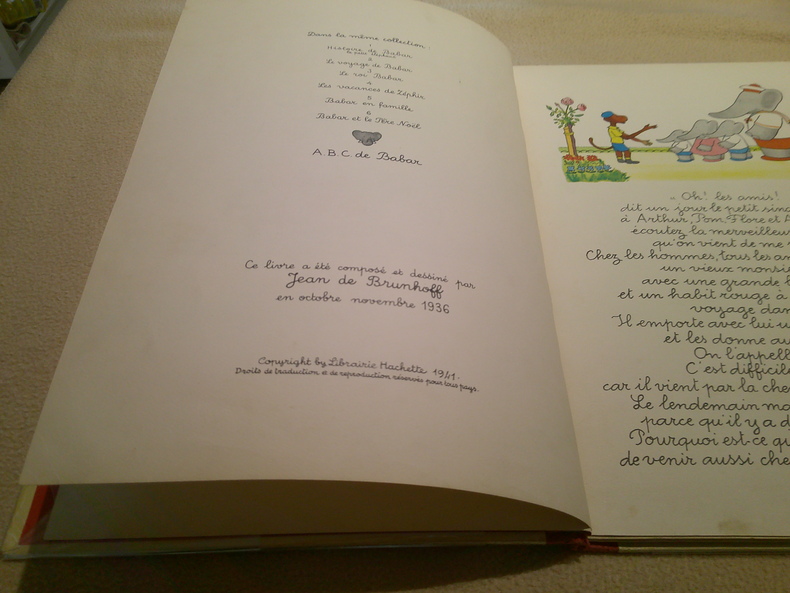 Dans la même collection :
1
Histoire de Babar
le petit éléphant
2
Le voyage de Babar
3
Le roi Babar
4
Les vacances de Zéphir
5
Babar en famille
6
Babar et le Père Noël
A.B.C. de Babar
Ce livre a été composé et dessiné par
Jean de Brunhoff
en octobre novembre 1936
Copyright by Librairie Hachette 1941.
Droits de traduction et de reproduction réservés pour tous pays.
« Oh! les amis!
dit un jour le petit sin
à Arthur, Pom, Flore et A
écoutez la merveilleu
qu'on vient de me
Chez les hommes, tous les an
un vieux monsi
avec une grande b
et un habit rouge à
voyage dan
Il emporte avec lui u
et les donne au
On l'appell
C'est difficile
car il vient par la che
Le lendemain ma
parce qu'il y a d
Pourquoi est-ce qu
devenir aussi che